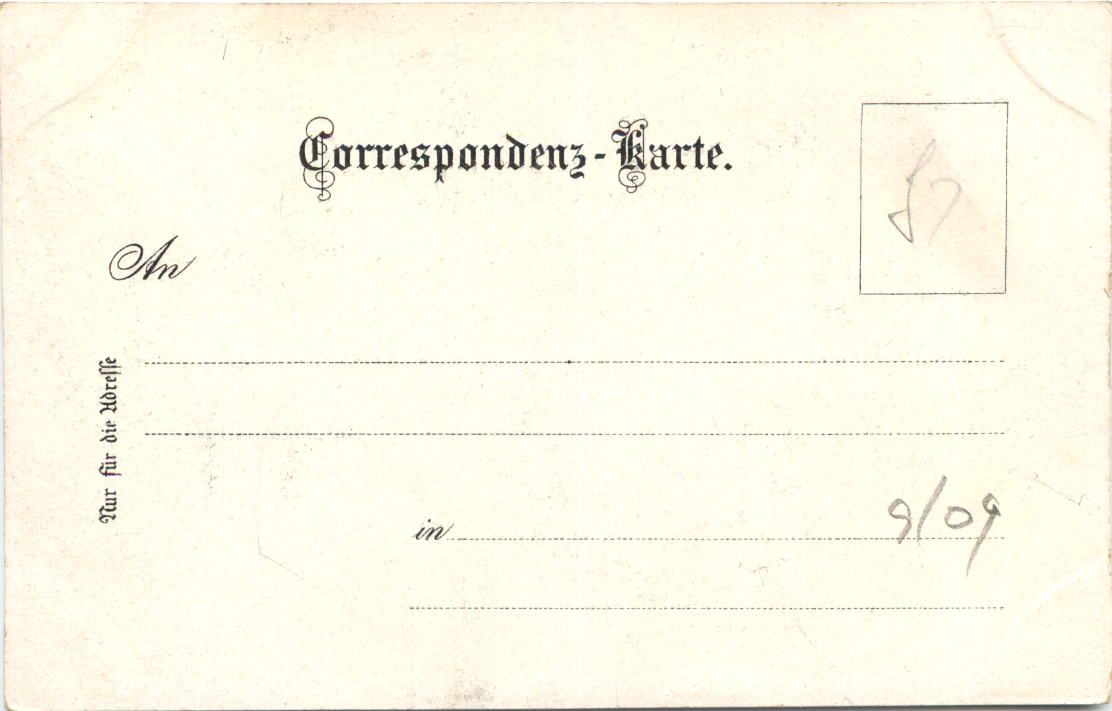 Correspondenz-Karte.
An
Nur für die Adresse
in
9/09